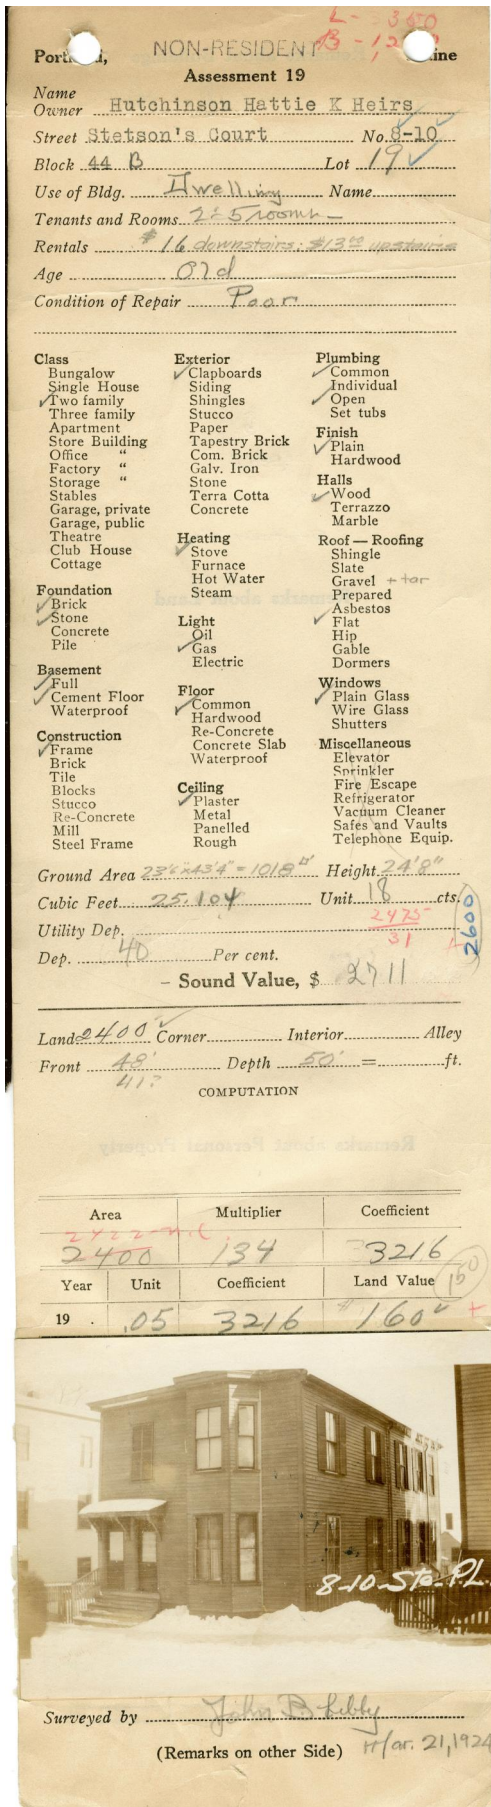 L - 350
B - 1,2
NON-RESIDENT
Port d, ine
Assessment 19
Name
Owner Hutchinson Hattie K Heirs
Street Stetson's Court No. 8-10
Block 44 B Lot 19
Use of Bldg. Dwelling Name
Tenants and Rooms 2 - 5 rooms -
Rentals $16 downstairs; $13.00 upstairs
Age Old
Condition of Repair Poor
Class
Bungalow
Single House
✓Two family
Three family
Apartment
Store Building
Office "
Factory "
Storage "
Stables
Garage, private
Garage, public
Theatre
Club House
Cottage
Foundation
✓Brick
✓Stone
Concrete
Pile
Basement
✓Full
✓Cement Floor
Waterproof
Construction
✓Frame
Brick
Tile
Blocks
Stucco
Re-Concrete
Mill
Steel Frame
Exterior
✓Clapboards
Siding
Shingles
Stucco
Paper
Tapestry Brick
Com. Brick
Galv. Iron
Stone
Terra Cotta
Concrete
Heating
✓Stove
Furnace
Hot Water
Steam
Light
Oil
✓Gas
Electric
Floor
✓Common
Hardwood
Re-Concrete
Concrete Slab
Waterproof
Ceiling
✓Plaster
Metal
Panelled
Rough
Plumbing
✓Common
Individual
✓Open
Set tubs
Finish
✓Plain
Hardwood
Halls
✓Wood
Terrazzo
Marble
Roof — Roofing
Shingle
Slate
Gravel + tar
Prepared
Asbestos
✓Flat
Hip
Gable
Dormers
Windows
✓Plain Glass
Wire Glass
Shutters
Miscellaneous
Elevator
Sprinkler
Fire Escape
Refrigerator
Vacuum Cleaner
Safes and Vaults
Telephone Equip.
Ground Area 23'6" x 43'4" = 1018 Height 24'8"
Cubic Feet 25,104 Unit 18 cts.
2475
31
2600
Utility Dep.
Dep. 40 Per cent.
— Sound Value, $ 2711
Land 2400 Corner Interior Alley
Front 48' Depth 50' = ft.
41?
COMPUTATION
Area Multiplier Coefficient
2422
2400 134 3216
Year Unit Coefficient Land Value
150
19 . .05 3216 $160
8-10-Sts-PL.
Surveyed by John B Libby
(Remarks on other Side) Mar. 21, 1924